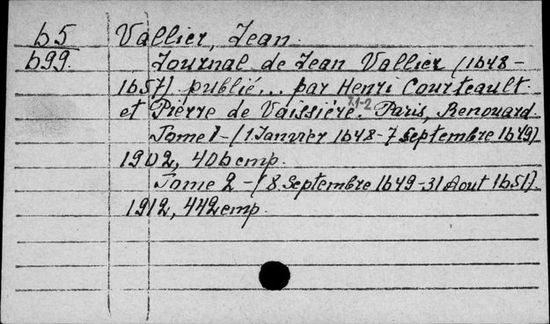 65 Vallier, Jean.
699. Journal de Jean Vallier (1648-
1657). publié... par Henri Courteault
et Pierre de Vaissière. T.1-2 Paris, Renouard.
Tome 1 - (1 Janvier 1648-7 septembre 1649)
1902, 406emp.
Tome 2 - (8 Septembre 1649-31 Aout 1651).
1912, 442emp.